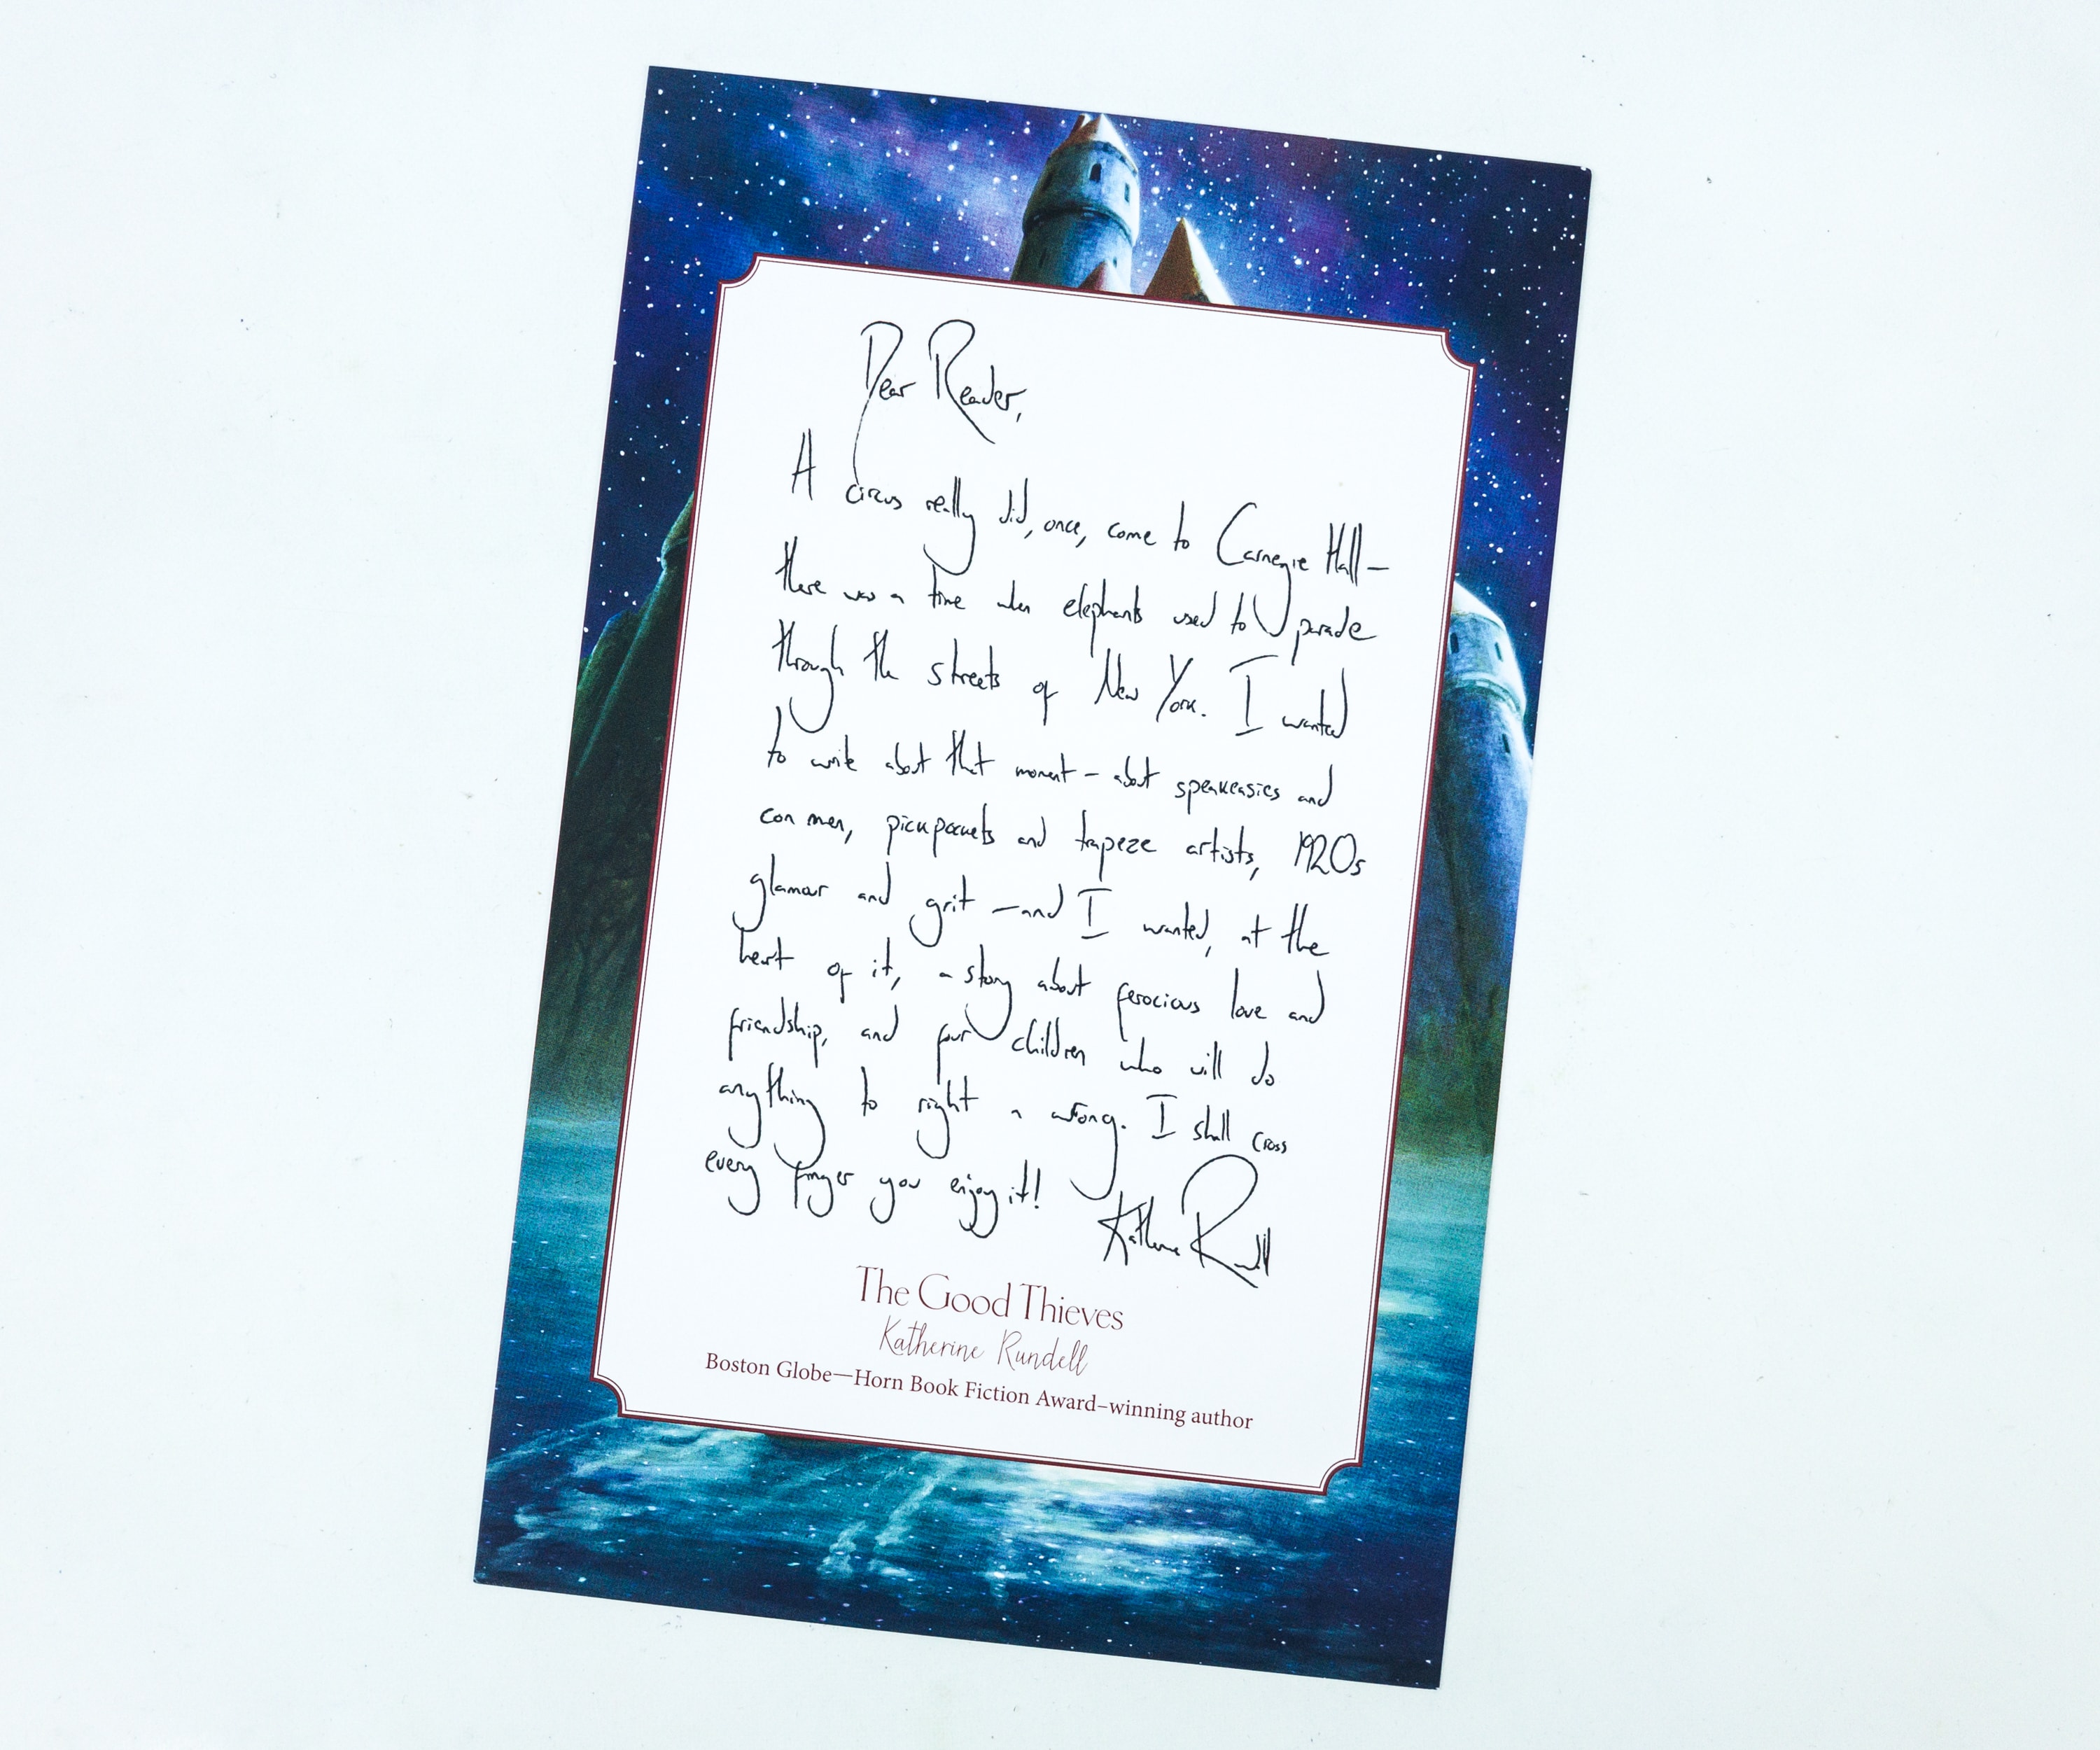 Dear Reader,
A circus really did, once, come to Carnegie Hall—
there was a time when elephants used to parade
through the streets of New York. I wanted
to write about that moment – about speakeasies and
con men, pickpockets and trapeze artists, 1920s
glamour and grit – and I wanted, at the
heart of it, a story about ferocious love and
friendship, and four children who will do
anything to right a wrong. I shall cross
every finger you enjoy it!
Katherine Rundell
The Good Thieves
Katherine Rundell
Boston Globe—Horn Book Fiction Award–winning author